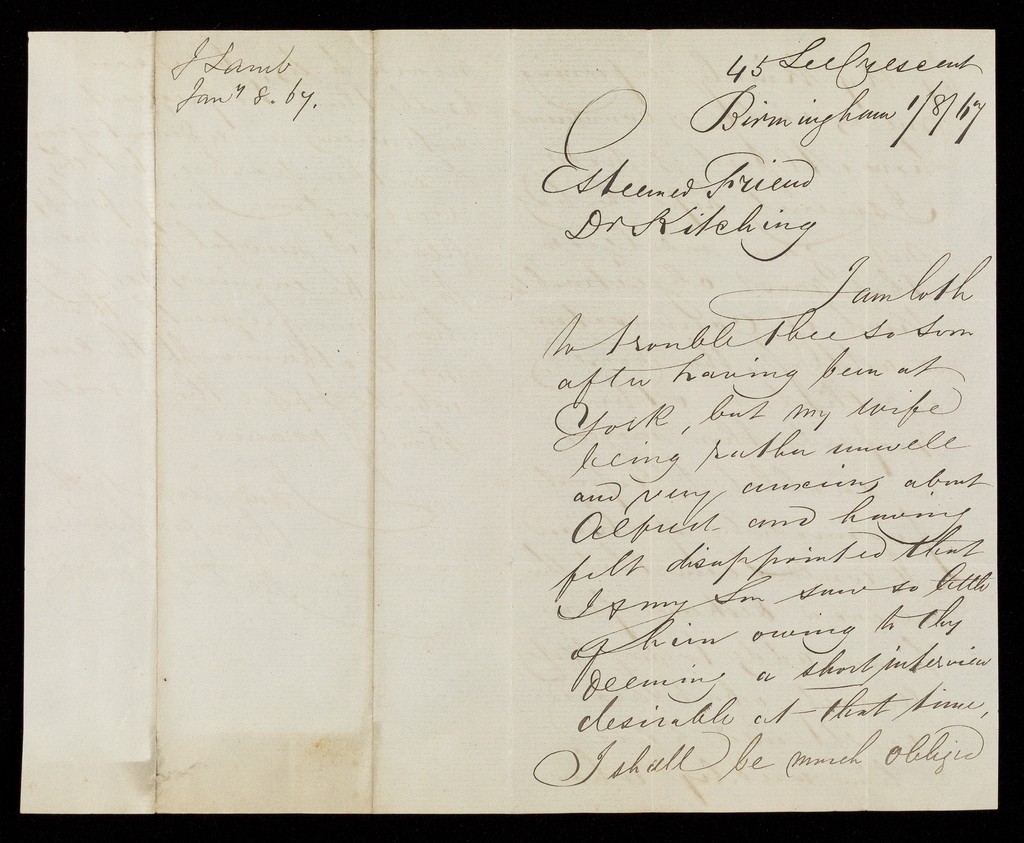 J Lamb
Jany 8. 67.
45 Lee Crescent
Birmingham 1/8/67
Esteemed Friend
Dr Kitching
I am loth
to trouble thee so soon
after having been at
York, but my wife
being rather unwell
and very anxious about
Alfred and having
felt disappointed that
I & my Son saw so little
of him owing to thy
deeming a short interview
desirable at that time,
I shall be much obliged